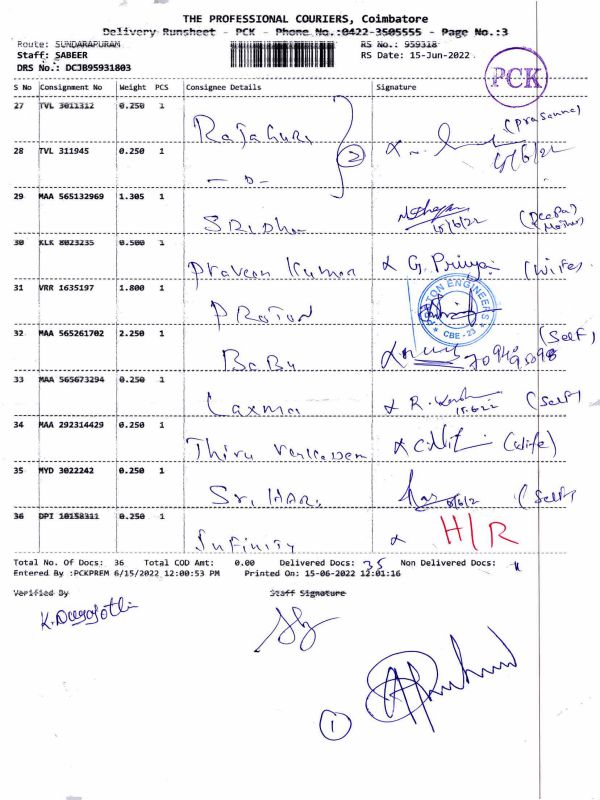 THE PROFESSIONAL COURIERS, Coimbatore
Delivery Runsheet - PCK - Phone No.:0422-3505555 - Page No.:3
Route: SUNDARAPURAM
RS No.: 959318
Staff: SABEER
RS Date: 15-Jun-2022
DRS No.: DCJB95931803
PCK
S No Consignment No Weight PCS Consignee Details Signature
27 TVL 3011312 0.250 1
Rajaguru (prasanna)
28 TVL 311945 0.250 1 2 15/6/22
- D -
29 MAA 565132969 1.305 1
Sridhar 15/6/22 (Deepa) Mother
30 KLK 8023235 0.500 1
Praveen Kumar G. Priya (wife)
31 VRR 1635197 1.800 1
PROTON ENGINEERS CBE - 23
Proton
32 MAA 565261702 2.250 1 (Self)
Babu
33 MAA 565673294 0.250 1
Laxma R. 15.6.22 (Self)
34 MAA 292314429 0.250 1
Thiru C. (wife)
35 MYD 3022242 0.250 1
Sri Hari (Self)
36 DPI 10158311 0.250 1
Infinity H/R
Total No. Of Docs: 36 Total COD Amt: 0.00 Delivered Docs: 35 Non Delivered Docs:
Entered By :PCKPREM 6/15/2022 12:00:53 PM Printed On: 15-06-2022 12:01:16
Verified By Staff Signature
1